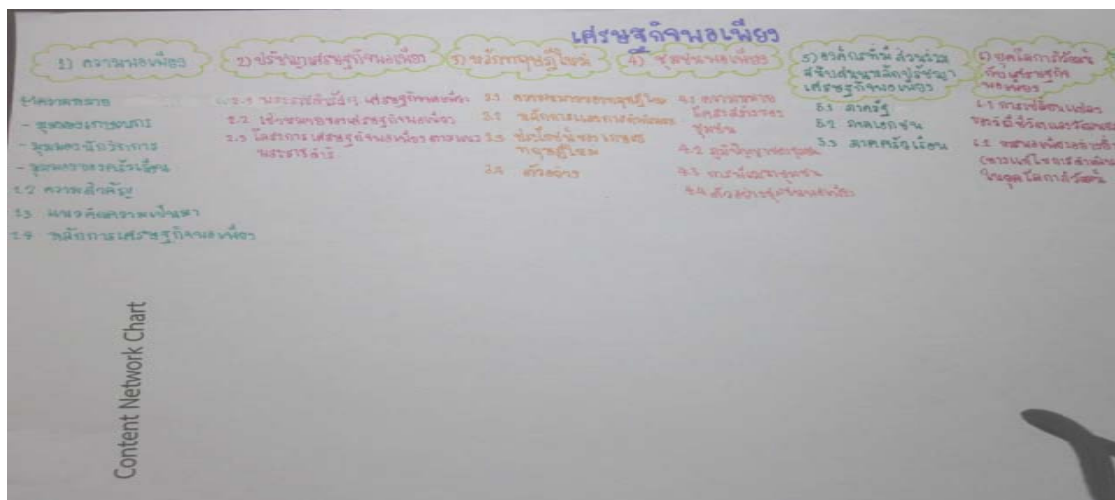 เศรษฐกิจพอเพียง
1) ความพอเพียง
1.1 ความหมาย
- มุมมองเกษตรกร
- มุมมองนักวิชาการ
- มุมมองของครัวเรือน
1.2 ความสำคัญ
1.3 แนวคิดความเป็นมา
1.4 หลักการเศรษฐกิจพอเพียง
2) ปรัชญาเศรษฐกิจพอเพียง
2.1 พระราชดำรัสฯ เศรษฐกิจพอเพียง
2.2 เป้าหมายของเศรษฐกิจพอเพียง
2.3 โครงการเศรษฐกิจพอเพียงตามแนว
พระราชดำริ
3) หลักทฤษฎีใหม่
3.1 ความหมายของทฤษฎีใหม่
3.2 หลักการและการดำเนินงาน
3.3 ประโยชน์ของเกษตร
ทฤษฎีใหม่
3.4 ตัวอย่าง
4) ชุมชนพอเพียง
4.1 ความหมาย
โครงสร้างของ
ชุมชน
4.2 ภูมิปัญญาชุมชน
4.3 การพัฒนาชุมชน
4.4 ตัวอย่างชุมชนพอเพียง
5) องค์กรที่มีส่วนร่วม
สนับสนุนหลักปรัชญา
เศรษฐกิจพอเพียง
5.1 ภาครัฐ
5.2 ภาคเอกชน
5.3 ภาคครัวเรือน
6) ยุคโลกาภิวัตน์
กับเศรษฐกิจ
พอเพียง
6.1 การเปลี่ยนแปลง
ของวิถีชีวิตและวัฒนธ
ในยุคโลกาภิวัตน์
Content Network Chart